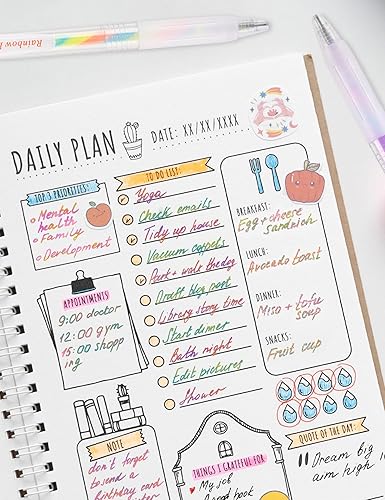 Rainbow
DAILY PLAN
DATE: XX/XX/XXXX
TOP 3 PRIORITIES:
Mental
health
Family
Development
TO DO LIST:
Yoga
Check emails
Tidy up house
Vacuum carpets
Park + walk the dog
Draft blog post
Library story time
Start dinner
Bath night
Edit pictures
Shower
APPOINTMENTS
9:00 doctor
12:00 gym
15:00 shopp
ing
BREAKFAST:
Egg + cheese
sandwich
LUNCH:
Avocado toast
DINNER:
Miso + tofu
soup
SNACKS:
Fruit cup
NOTE
don't forget
to send a
birthday card
THINGS I GRATEFUL FOR
My job
good book
QUOTE OF THE DAY:
"Dream big
aim high